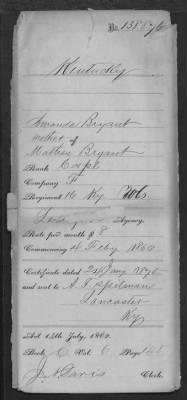 No. 138676
Kentucky
Amanda Bryant
mother of
Mathew Bryant
Rank Corpl
Company F
Regiment 16 Ky Vols.
Agency.
Rate per month $ 8
Commencing 4 Feby
Certificate dated
and sent to A. T. Spelman
Lancaster
Ky
Act 14th July, 1862.
Book C Vol. 6 Page 148
Davis Clerk.